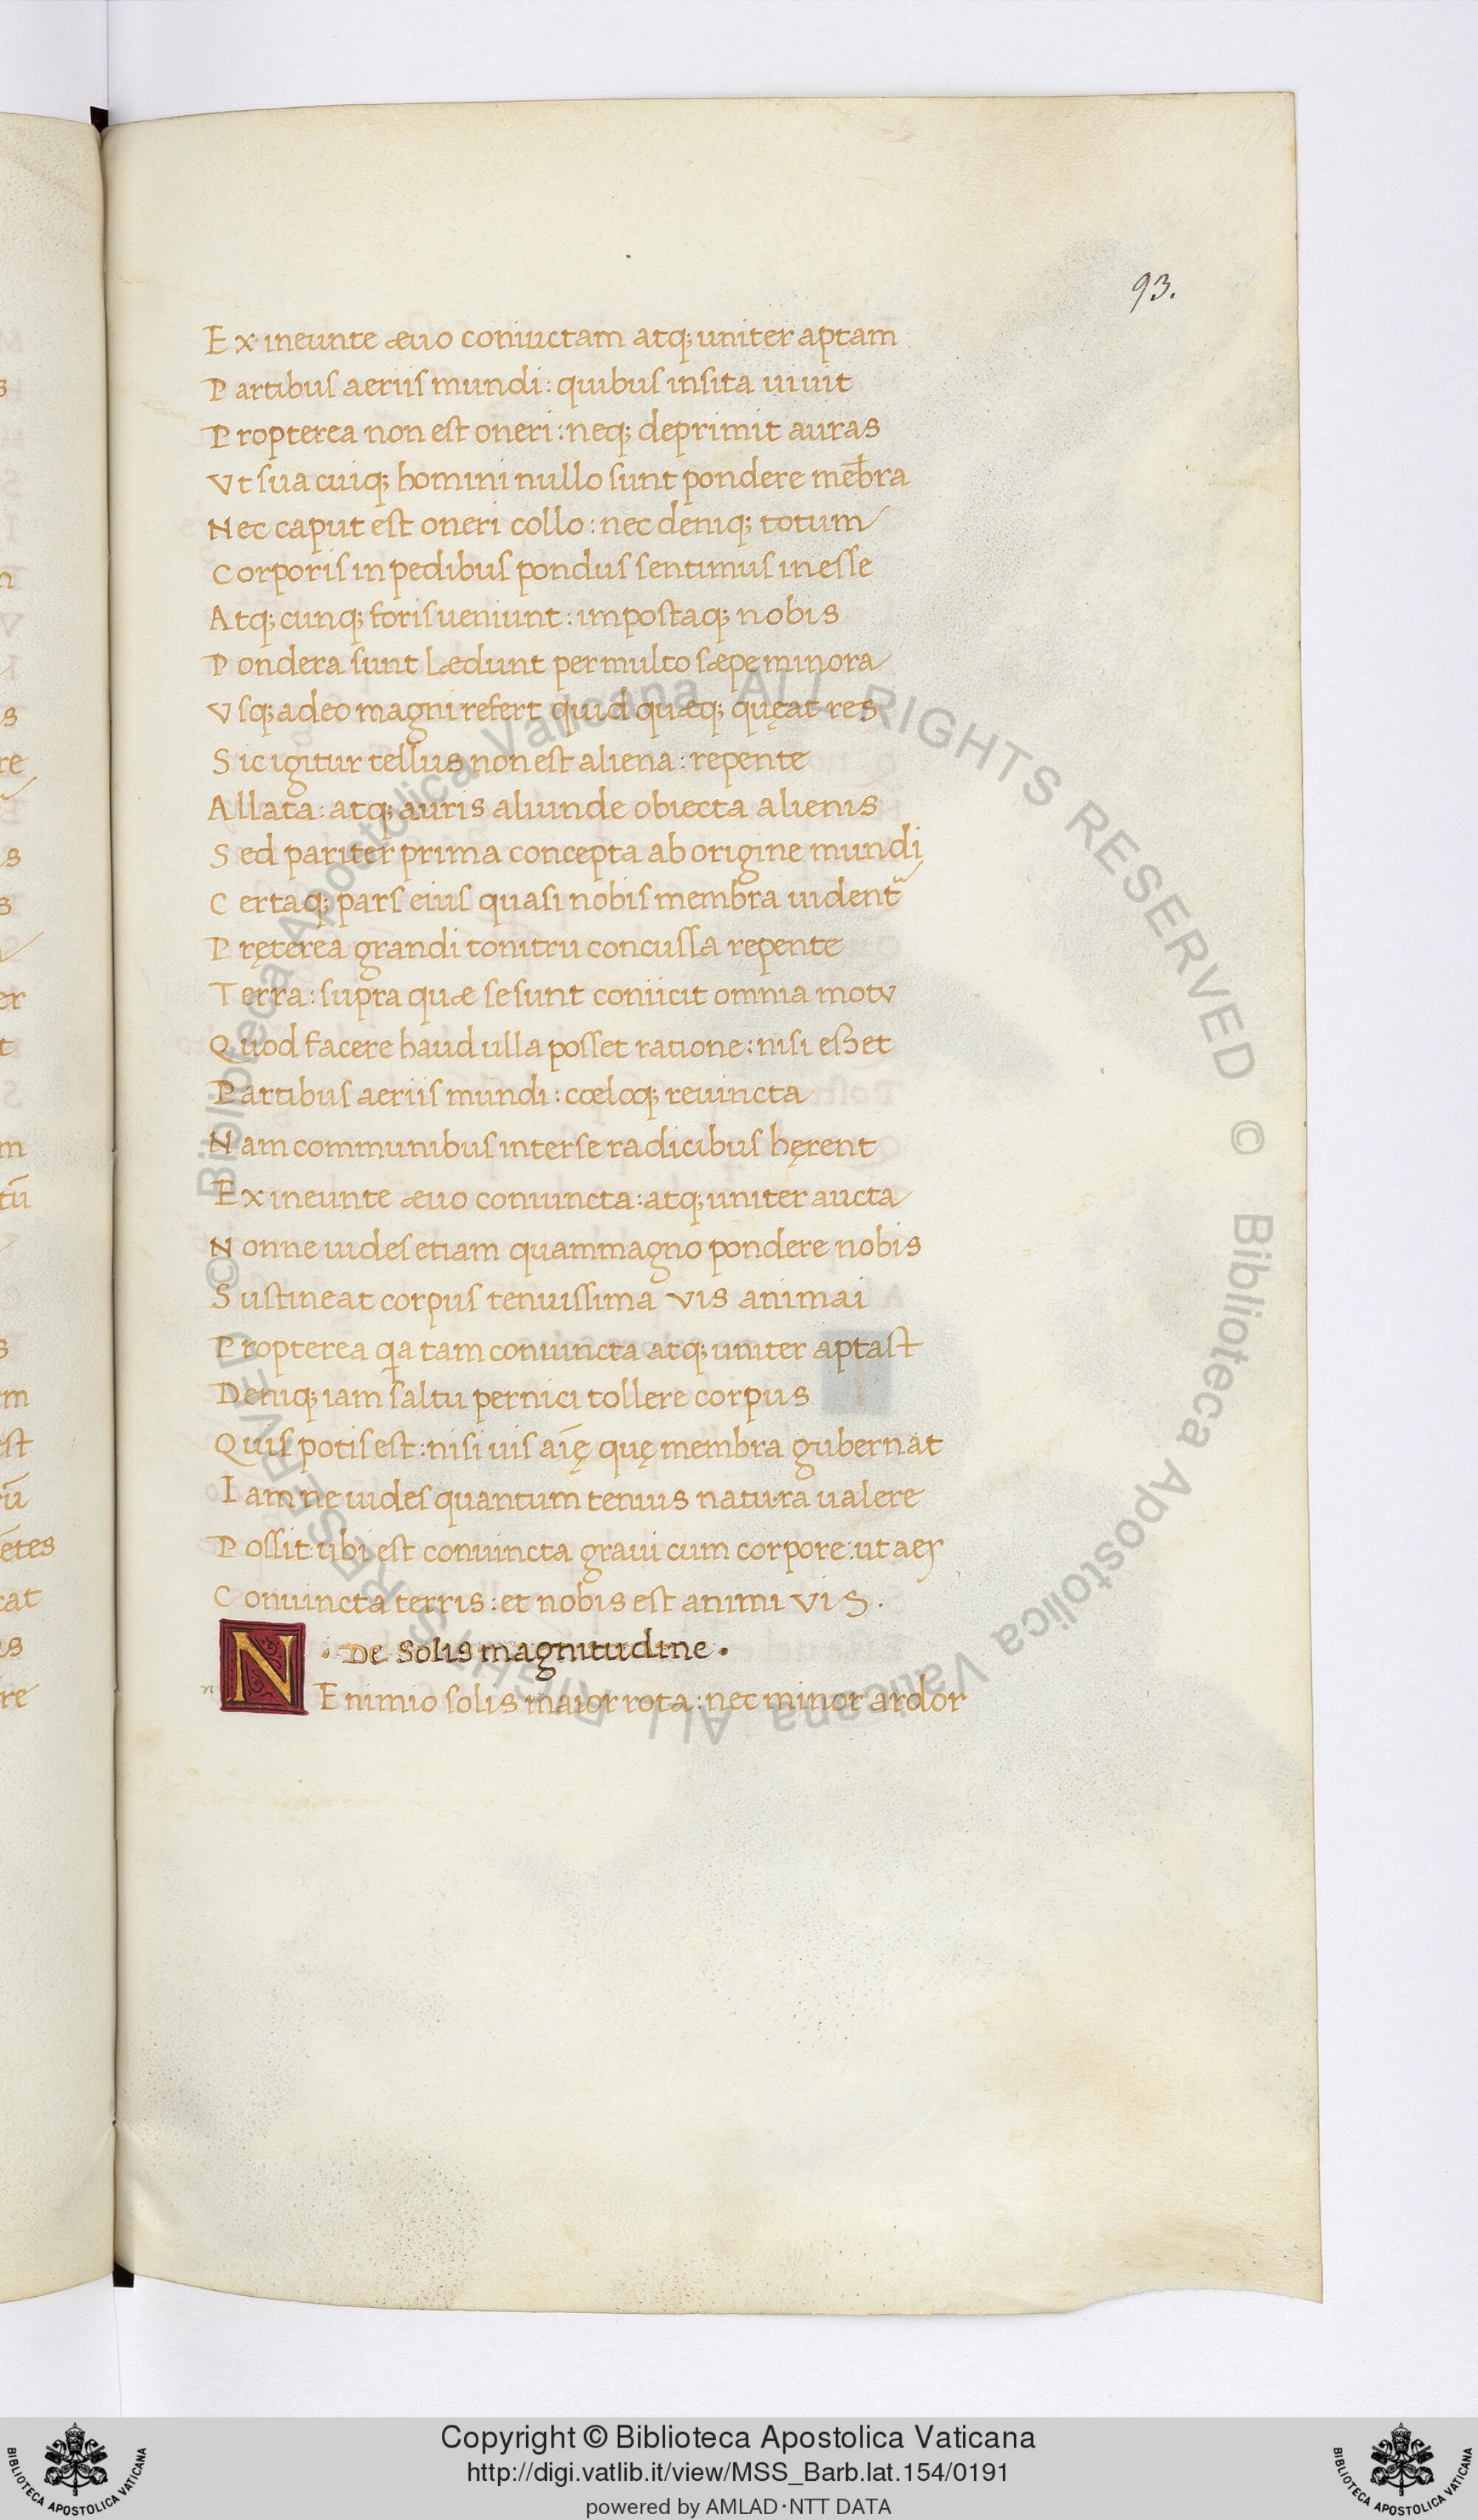 93.
Ex ineunte æuo coniuctam atq; uniter aptam
Partibus aeriis mundi: quibus insita uiuit
Propterea non est oneri: neq; deprimit auras
Vt sua cuiq; homini nullo sunt pondere mēbra
Nec caput est oneri collo: nec deniq; totum
Corporis in pedibus pondus sentimus inesse
Atq; cunq; foris ueniunt: impostaq; nobis
Pondera sunt lædunt permulto sæpe minora
Vsq; adeo magni refert quid quæq; quęat res
Sic igitur tellus non est aliena: repente
Allata: atq; auris aliunde obiecta alienis
Sed pariter prima concepta ab origine mundi
Certaq; pars eius quasi nobis membra uident᷑
Pręterea grandi tonitru concussa repente
Terra: supra quæ se sunt coniicit omnia motu
Quod facere haud ulla posset ratione: nisi esset
Partibus aeriis mundi: cœloq; reuincta
Nam communibus inter se radicibus hęrent
Ex ineunte æuo coniuncta: atq; uniter aucta
Nonne uides etiam quam magno pondere nobis
Sustineat corpus tenuissima vis animai
Propterea qa tam coniuncta atq; uniter aptast
Deniq; iam saltu pernici tollere corpus
Quis potis est: nisi uis aīę quę membra gubernat
Iam ne uides quantum tenius natura ualere
Possit ubi est coniuncta graui cum corpore: ut aer
Coniuncta terris: et nobis est animi vis.
· De Solis magnitudine ·
n NE nimio solis maior rota: nec minor ardor
© Biblioteca Apostolica Vaticana ALL RIGHTS RESERVED © Biblioteca Apostolica Vaticana ALL RIGHTS RESERVED
Copyright © Biblioteca Apostolica Vaticana
http://digi.vatlib.it/view/MSS_Barb.lat.154/0191
powered by AMLAD·NTT DATA
BIBLIOTECA APOSTOLICA VATICANA
BIBLIOTECA APOSTOLICA VATICANA